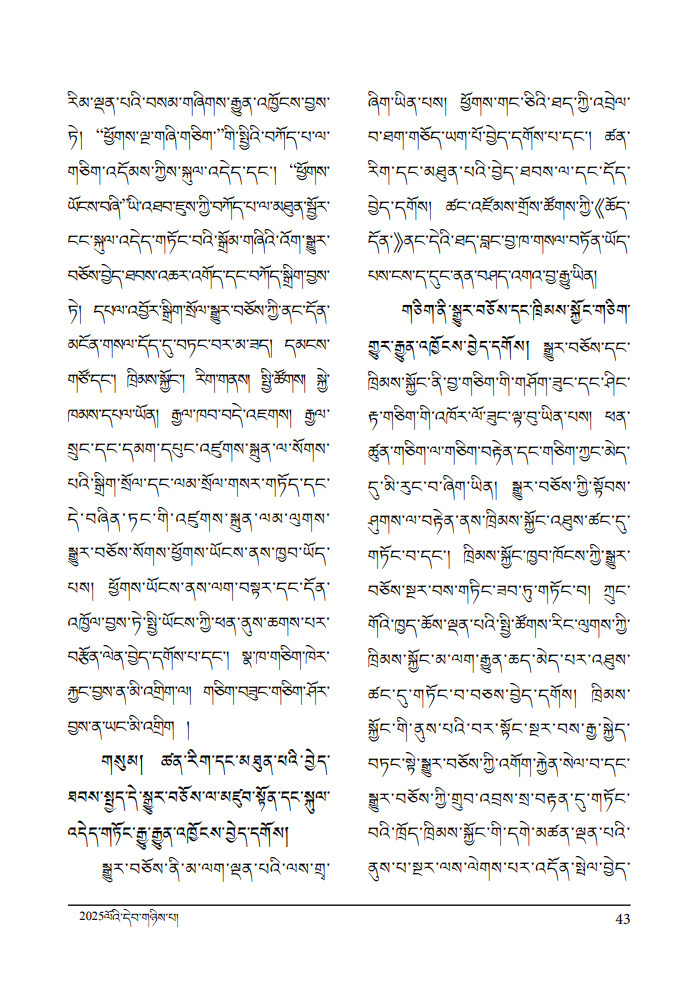 རིམ་ལྡན་པའི་བསམ་གཞིགས་རྒྱུན་འཁྱོངས་བྱས་
ཏེ། “ཕྱོགས་ལྔ་གཞི་གཅིག་”གི་སྤྱིའི་བཀོད་པ་ལ་
གཅིག་འདོམས་ཀྱིས་སྐུལ་འདེད་དང་། “ཕྱོགས་
ཡོངས་བཞི་”ཡི་འཐབ་ཇུས་ཀྱི་བཀོད་པ་ལ་མཐུན་སྦྱོར་
ངང་སྐུལ་འདེད་གཏོང་བའི་སྒྲོམ་གཞིའི་འོག་སྒྱུར་
བཅོས་བྱེད་ཐབས་འཆར་འགོད་དང་བཀོད་སྒྲིག་བྱས་
ཏེ། དཔལ་འབྱོར་སྒྲིག་སྲོལ་སྒྱུར་བཅོས་ཀྱི་ནང་དོན་
མངོན་གསལ་དོད་དུ་བཏང་བར་མ་ཟད། དམངས་
གཙོ་དང་། ཁྲིམས་སྐྱོང་། རིག་གནས། སྤྱི་ཚོགས། སྐྱེ་
ཁམས་དཔལ་ཡོན། རྒྱལ་ཁབ་བདེ་འཇགས། རྒྱལ་
སྲུང་དང་དམག་དཔུང་འཛུགས་སྐྲུན་ལ་སོགས་
པའི་སྒྲིག་སྲོལ་དང་ལམ་སྲོལ་གསར་གཏོད་དང་
དེ་བཞིན་ཏང་གི་འཛུགས་སྐྲུན་ལམ་ལུགས་
སྒྱུར་བཅོས་སོགས་ཕྱོགས་ཡོངས་ནས་ཁྱབ་ཡོད་
པས། ཕྱོགས་ཡོངས་ནས་ལག་བསྟར་དང་དོན་
འཁྱོལ་བྱས་ཏེ་སྤྱི་ཡོངས་ཀྱི་ཕན་ནུས་ཆགས་པར་
བརྩོན་ལེན་བྱེད་དགོས་པ་དང་། སྣ་ཁ་གཅིག་ཁེར་
རྐྱང་བྱས་ན་མི་འགྲིག་ལ། གཅིག་བཟུང་གཅིག་ཤོར་
བྱས་ན་ཡང་མི་འགྲིག །
གསུམ། ཚན་རིག་དང་མཐུན་པའི་བྱེད་
ཐབས་སྤྱད་དེ་སྒྱུར་བཅོས་ལ་མཛུབ་སྟོན་དང་སྐུལ་
འདེད་གཏོང་རྒྱུ་རྒྱུན་འཁྱོངས་བྱེད་དགོས།
སྒྱུར་བཅོས་ནི་མ་ལག་ལྡན་པའི་ལས་གྲྭ་
ཞིག་ཡིན་པས། ཕྱོགས་གང་ཅིའི་ཐད་ཀྱི་འབྲེལ་
བ་ཐག་གཅོད་ཡག་པོ་བྱེད་དགོས་པ་དང་། ཚན་
རིག་དང་མཐུན་པའི་བྱེད་ཐབས་ལ་དང་དོད་
བྱེད་དགོས། ཚང་འཛོམས་གྲོས་ཚོགས་ཀྱི་《ཆོད་
དོན་》ནང་དེའི་ཐད་བླང་བྱ་ཁ་གསལ་བཏོན་ཡོད་
པས་ངས་ད་དུང་ནན་བཤད་འགའ་བྱ་རྒྱུ་ཡིན།
གཅིག་ནི་སྒྱུར་བཅོས་དང་ཁྲིམས་སྐྱོང་གཅིག་
གྱུར་རྒྱུན་འཁྱོངས་བྱེད་དགོས། སྒྱུར་བཅོས་དང་
ཁྲིམས་སྐྱོང་ནི་བྱ་གཅིག་གི་གཤོག་ཟུང་དང་ཤིང་
རྟ་གཅིག་གི་འཁོར་ལོ་ཟུང་ལྟ་བུ་ཡིན་པས། ཕན་
ཚུན་གཅིག་ལ་གཅིག་བརྟེན་དང་གཅིག་ཀྱང་མེད་
དུ་མི་རུང་བ་ཞིག་ཡིན། སྒྱུར་བཅོས་ཀྱི་སྟོབས་
ཤུགས་ལ་བརྟེན་ནས་ཁྲིམས་སྐྱོང་འཐུས་ཚང་དུ་
གཏོང་བ་དང་། ཁྲིམས་སྐྱོང་ཁྱབ་ཁོངས་ཀྱི་སྒྱུར་
བཅོས་སྔར་བས་གཏིང་ཟབ་ཏུ་གཏོང་བ། ཀྲུང་
གོའི་ཁྱད་ཆོས་ལྡན་པའི་སྤྱི་ཚོགས་རིང་ལུགས་ཀྱི་
ཁྲིམས་སྐྱོང་མ་ལག་རྒྱུན་ཆད་མེད་པར་འཐུས་
ཚང་དུ་གཏོང་བ་བཅས་བྱེད་དགོས། ཁྲིམས་
སྐྱོང་གི་ནུས་པའི་བར་སྟོང་སྔར་བས་རྒྱ་སྐྱེད་
བཏང་སྟེ་སྒྱུར་བཅོས་ཀྱི་འགོག་རྐྱེན་སེལ་བ་དང་
སྒྱུར་བཅོས་ཀྱི་གྲུབ་འབྲས་སྲ་བརྟན་དུ་གཏོང་
བའི་ཁྲོད་ཁྲིམས་སྐྱོང་གི་དགེ་མཚན་ལྡན་པའི་
ནུས་པ་སྔར་ལས་ལེགས་པར་འདོན་སྤེལ་བྱེད་
2025ལོའི་དེབ་གཉིས་པ།
43